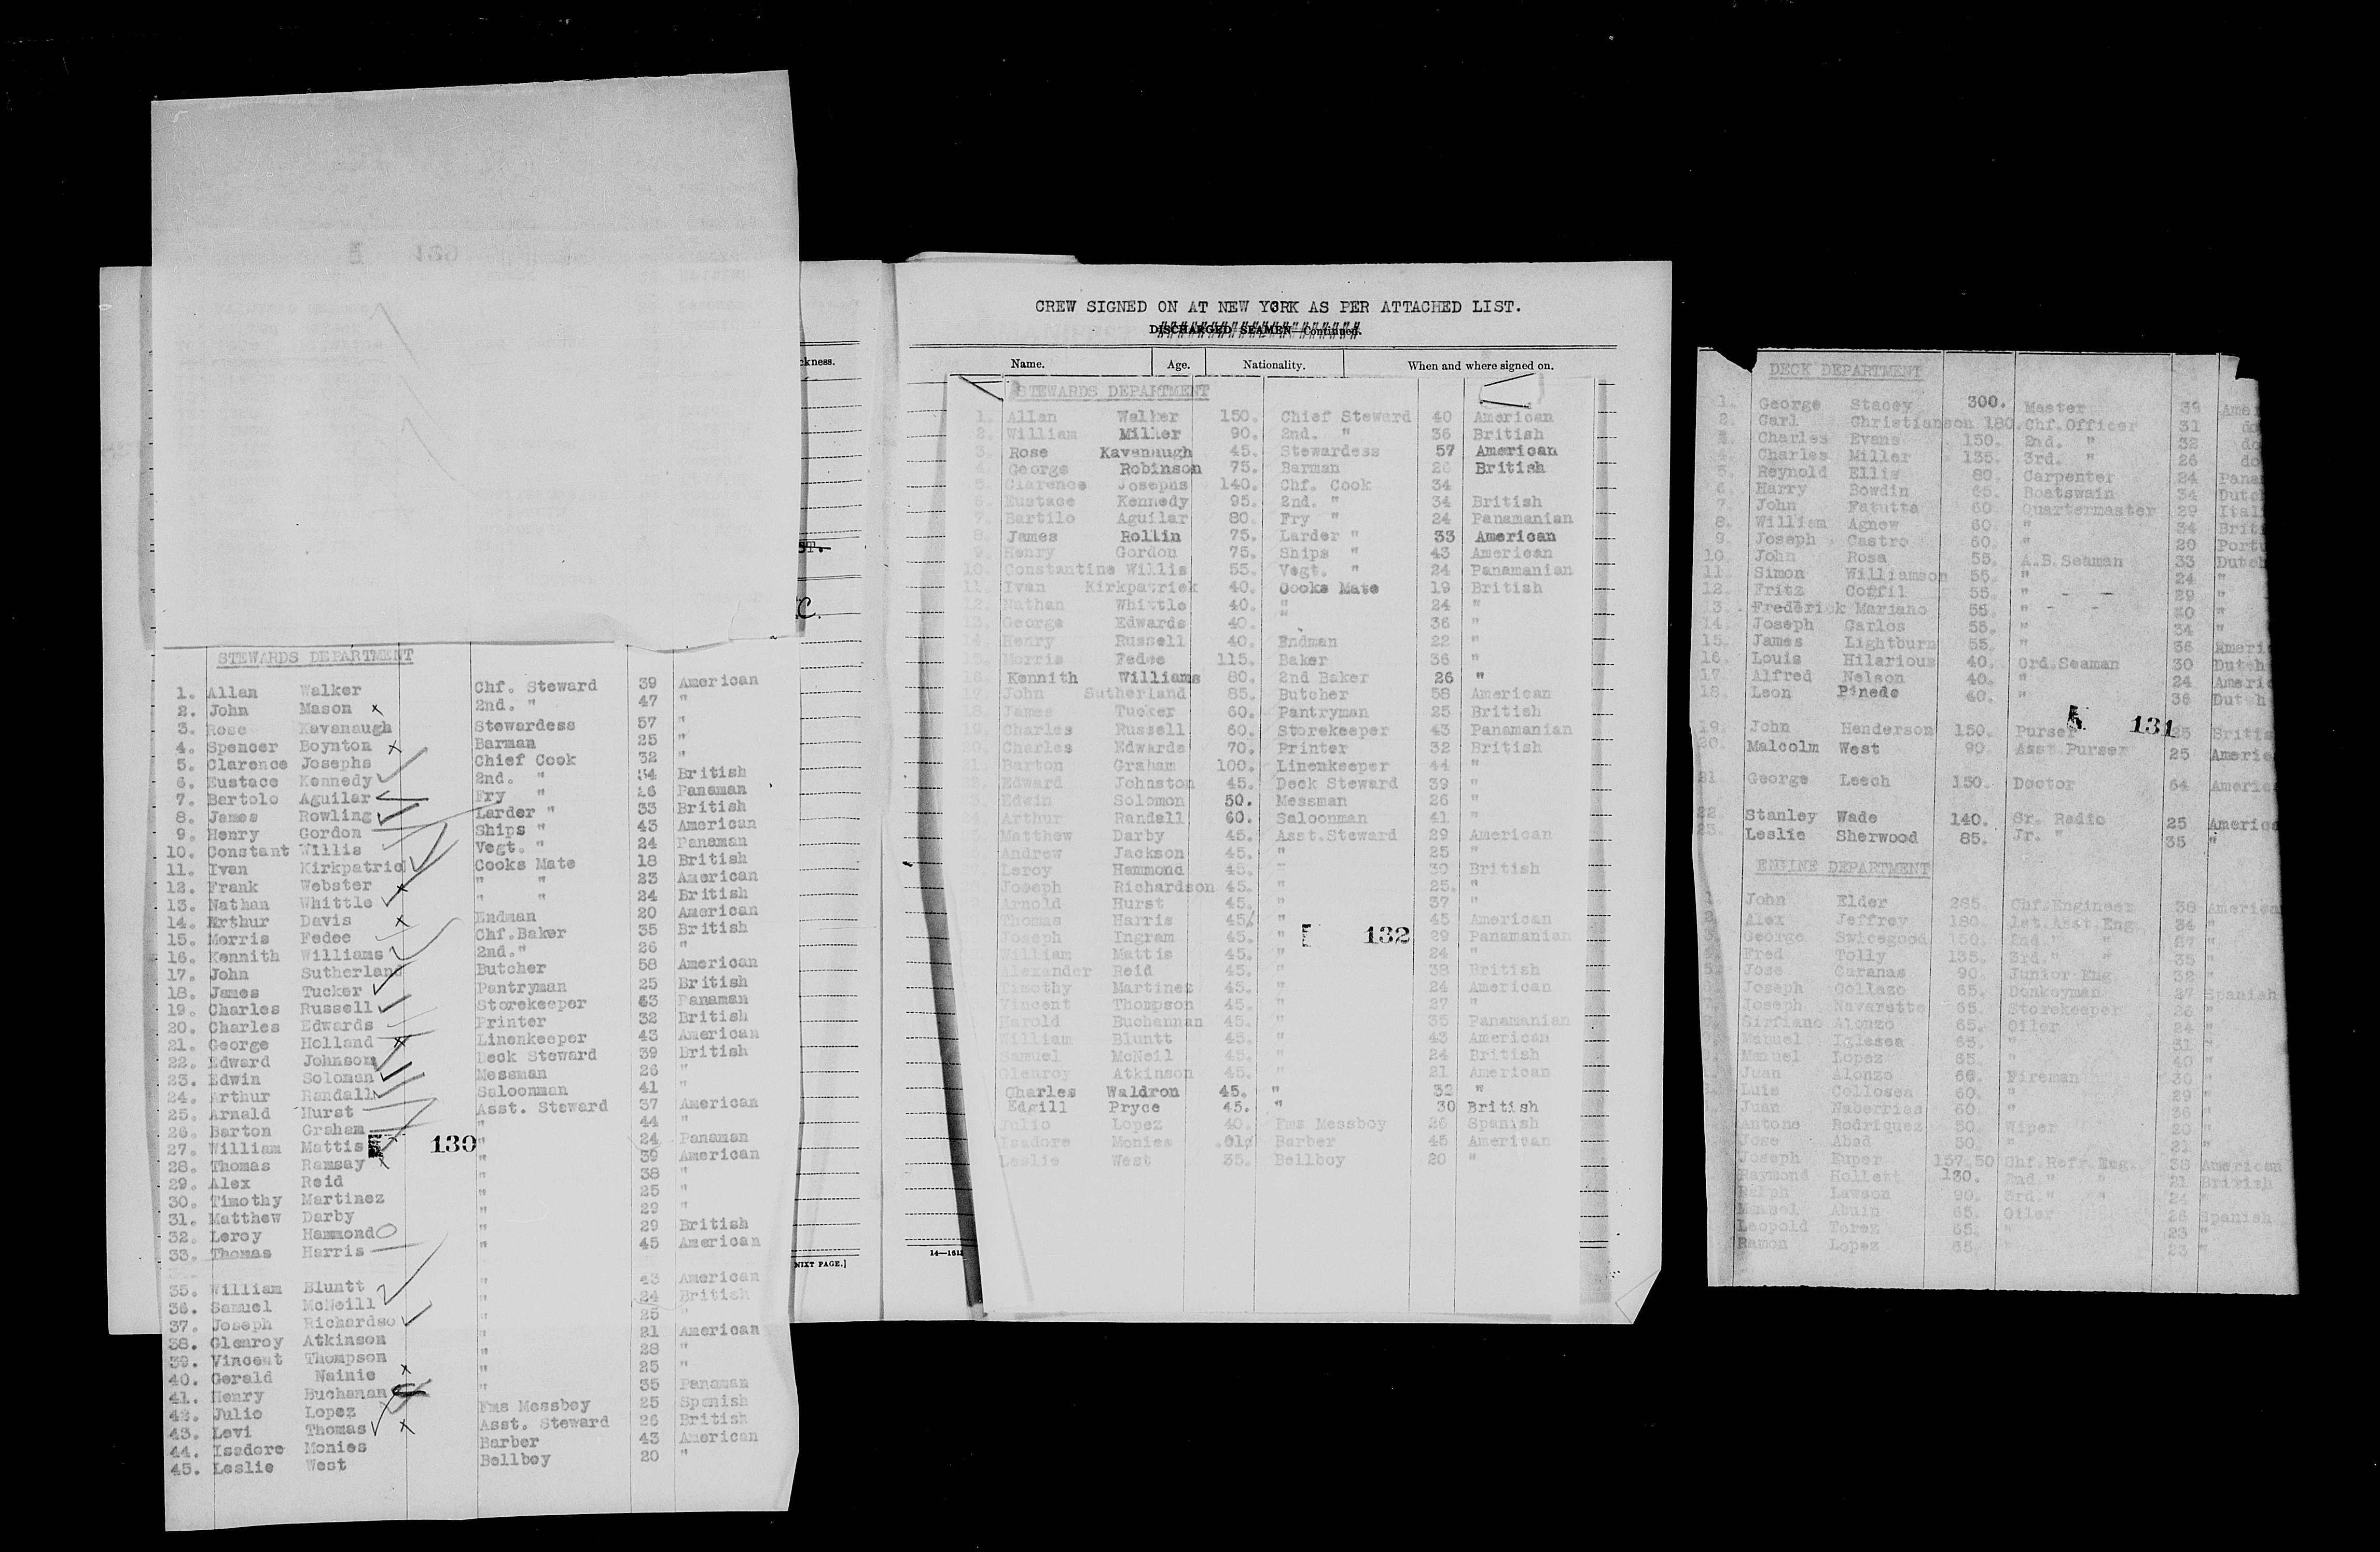 STEWARDS DEPARTMENT
1. Allan Walker Chf. Steward 39 American
2. John Mason x 2nd. " 47 "
3. Rose Kavanaugh Stewardess 57 "
4. Spencer Boynton x Barman 25 "
5. Clarence Josephs Chief Cook 32 "
6. Eustace Kennedy 2nd. " 34 British
7. Bartolo Aguilar Fry " 26 Panaman
8. James Rowling Larder " 33 British
9. Henry Gordon Ships " 43 American
10. Constant Willis Vegt. " 24 Panaman
11. Ivan Kirkpatric Cooks Mate 18 British
12. Frank Webster x " " 23 American
13. Nathan Whittle " " 24 British
14. Arthur Davis x Endman 20 American
15. Morris Fedee Chf.Baker 35 British
16. Kennith Williams 2nd." 26 "
17. John Sutherland Butcher 58 American
18. James Tucker Pantryman 25 British
19. Charles Russell Storekeeper 43 Panaman
20. Charles Edwards Printer 32 British
21. George Holland x Linenkeeper 43 American
22. Edward Johnson Deck Steward 39 British
23. Edwin Soloman Messman 26 "
24. Arthur Randall Saloonman 41 "
25. Arnald Hurst Asst. Steward 37 American
26. Barton Graham " 44 "
27. William Mattis " 24 Panaman
130
28. Thomas Ramsay x " 39 American
29. Alex Reid " 38 "
30. Timothy Martinez " 25 "
31. Matthew Darby " 29 "
32. Leroy Hammond " 29 British
33. Thomas Harris " 45 American
35. William Bluntt " 43 American
36. Samuel McNeill " 24 British
37. Joseph Richardso " 25 "
38. Glenroy Atkinson " 21 American
39. Vincent Thompson " 28 "
40. Gerald Nainie x " 25 "
41. Henry Buchanan " 35 Panaman
42. Julio Lopez Fms Messboy 25 Spanish
43. Levi Thomas x Asst. Steward 26 British
44. Isadore Monies Barber 43 American
45. Leslie West Bellboy 20 "
ckness.
ST.
NEXT PAGE.]
CREW SIGNED ON AT NEW YORK AS PER ATTACHED LIST.
DISCHARGED SEAMEN—Continued.
Name. Age. Nationality. When and where signed on.
STEWARDS DEPARTMENT
1. Allan Walker 150. Chief Steward 40 American
2. William Miller 90. 2nd. " 36 British
3. Rose Kavenaugh 45. Stewardess 57 American
4. George Robinson 75. Barman 26 British
5. Clarence Josephs 140. Chf. Cook 34
6. Eustace Kennedy 95. 2nd. " 34 British
7. Bartilo Aguilar 80. Fry " 24 Panamanian
8. James Rollin 75. Larder " 33 American
9. Henry Gordon 75. Ships " 43 American
10. Constantine Willis 55. Vegt. " 24 Panamanian
11. Ivan Kirkpatrick 40. Cooks Mate 19 British
12. Nathan Whittle 40. " 24 "
13. George Edwards 40. 36 "
14. Henry Russell 40. Endman 22 "
15. Morris Fedee 115. Baker 36 "
16. Kennith Williams 80. 2nd Baker 26 "
17. John Sutherland 85. Butcher 58 American
18. James Tucker 60. Pantryman 25 British
19. Charles Russell 60. Storekeeper 43 Panamanian
20. Charles Edwards 70. Printer 32 British
21. Barton Graham 100. Linenkeeper 44 "
Edward Johnston 45. Deck Steward 39 "
Edwin Solomon 50. Messman 26 "
Arthur Randall 60. Saloonman 41 "
Matthew Darby 45. Asst.Steward 29 American
Andrew Jackson 45. " 25 "
Leroy Hammond 45. " 30 British
Joseph Richardson 45. " 25. "
Arnold Hurst 45. " 37 "
Thomas Harris 45. " 45 American
Joseph Ingram 45. " 29 Panamanian
132
William Mattis 45. " 24 "
Alexander Reid 45. " 38 British
Timothy Martinez 45. " 24 American
Vincent Thompson 45. " 27 "
Harold Buchennan 45. " 35 Panamanian
William Bluntt 45. " 43 American
Samuel McNeil 45. " 24 British
Glenroy Atkinson 45. " 21 American
Charles Waldron 45. " 32 "
Edgill Pryce 45. " 30 British
Julio Lopez 40. Fms Messboy 26 Spanish
Isadore Monies .01¢ Barber 45 American
Leslie West 35. Bellboy 20 "
14—161
DECK DEPARTMENT
1. George Stacey 300. Master 39 Amer
2. Carl Christianson 180. Chf.Officer 31 do
3. Charles Evans 150. 2nd. " 32 do
4. Charles Miller 135. 3rd. " 26 do
5. Reynold Ellis 80. Carpenter 24 Pana
6. Harry Bowdin 65. Boatswain 34 Dutch
7. John Fatutta 60. Quartermaster 29 Ital
8. William Agnew 60. " 34 Briti
9. Joseph Castro 60. " 20 Portu
10. John Rosa 55. A.B.Seaman 33 Dutch
11. Simon Williamson 55. " 24 "
12. Fritz Coffil 55. " 29 "
13. Frederick Mariano 55. " 40 "
14. Joseph Carlos 55. " 34 "
15. James Lightburn 55. " 36 Ameri
16. Louis Hilarious 40. Ord.Seaman 30 Dutch
17. Alfred Nelson 40. " 24 Americ
18. Leon Pinedo 40. " 36 Dutch
131
19. John Henderson 150. Purser 25 Britis
20. Malcolm West 90. Asst.Purser 25 Americ
21 George Leech 150. Doctor 64 America
22. Stanley Wade 140. Sr. Radio 25 America
23. Leslie Sherwood 85. Jr. " 35 "
ENGINE DEPARTMENT
1 John Elder 285. Chf.Engineer 38 America
2. Alex Jeffrey 180. 1st.Asst.Eng. 34 "
3. George Swicegood 150. 2nd." " 37 "
4. Fred Tolly 135. 3rd." " 35 "
5. Jose Curanas 90. Junior Eng 32 "
Joseph Collazo 65. Donkeyman 27 Spanish
Joseph Navarette 65. Storekeeper 26 "
Sirfiano Alonzo 65. Oiler 24 "
Manuel Iglesea 65. " 31 "
Manuel Lopez 65. " 40 "
Juan Alonzo 60. Fireman 30 "
Luis Collosea 60. " 29 "
Juan Naberrias 60. " 36 "
Antone Rodriquez 50. Wiper 20 "
Jose Abad 50. " 21 "
Joseph Euper 157.50 Chf.Refr.Eng. 38 American
Raymond Hollett 130. 2nd." " 21 British
Ralph Lawson 90. 3rd." " 24 "
Manuel Abuin 65. Oiler 26 Spanish
Leopold Torez 65. " 23 "
Ramon Lopez 65. " 23 "